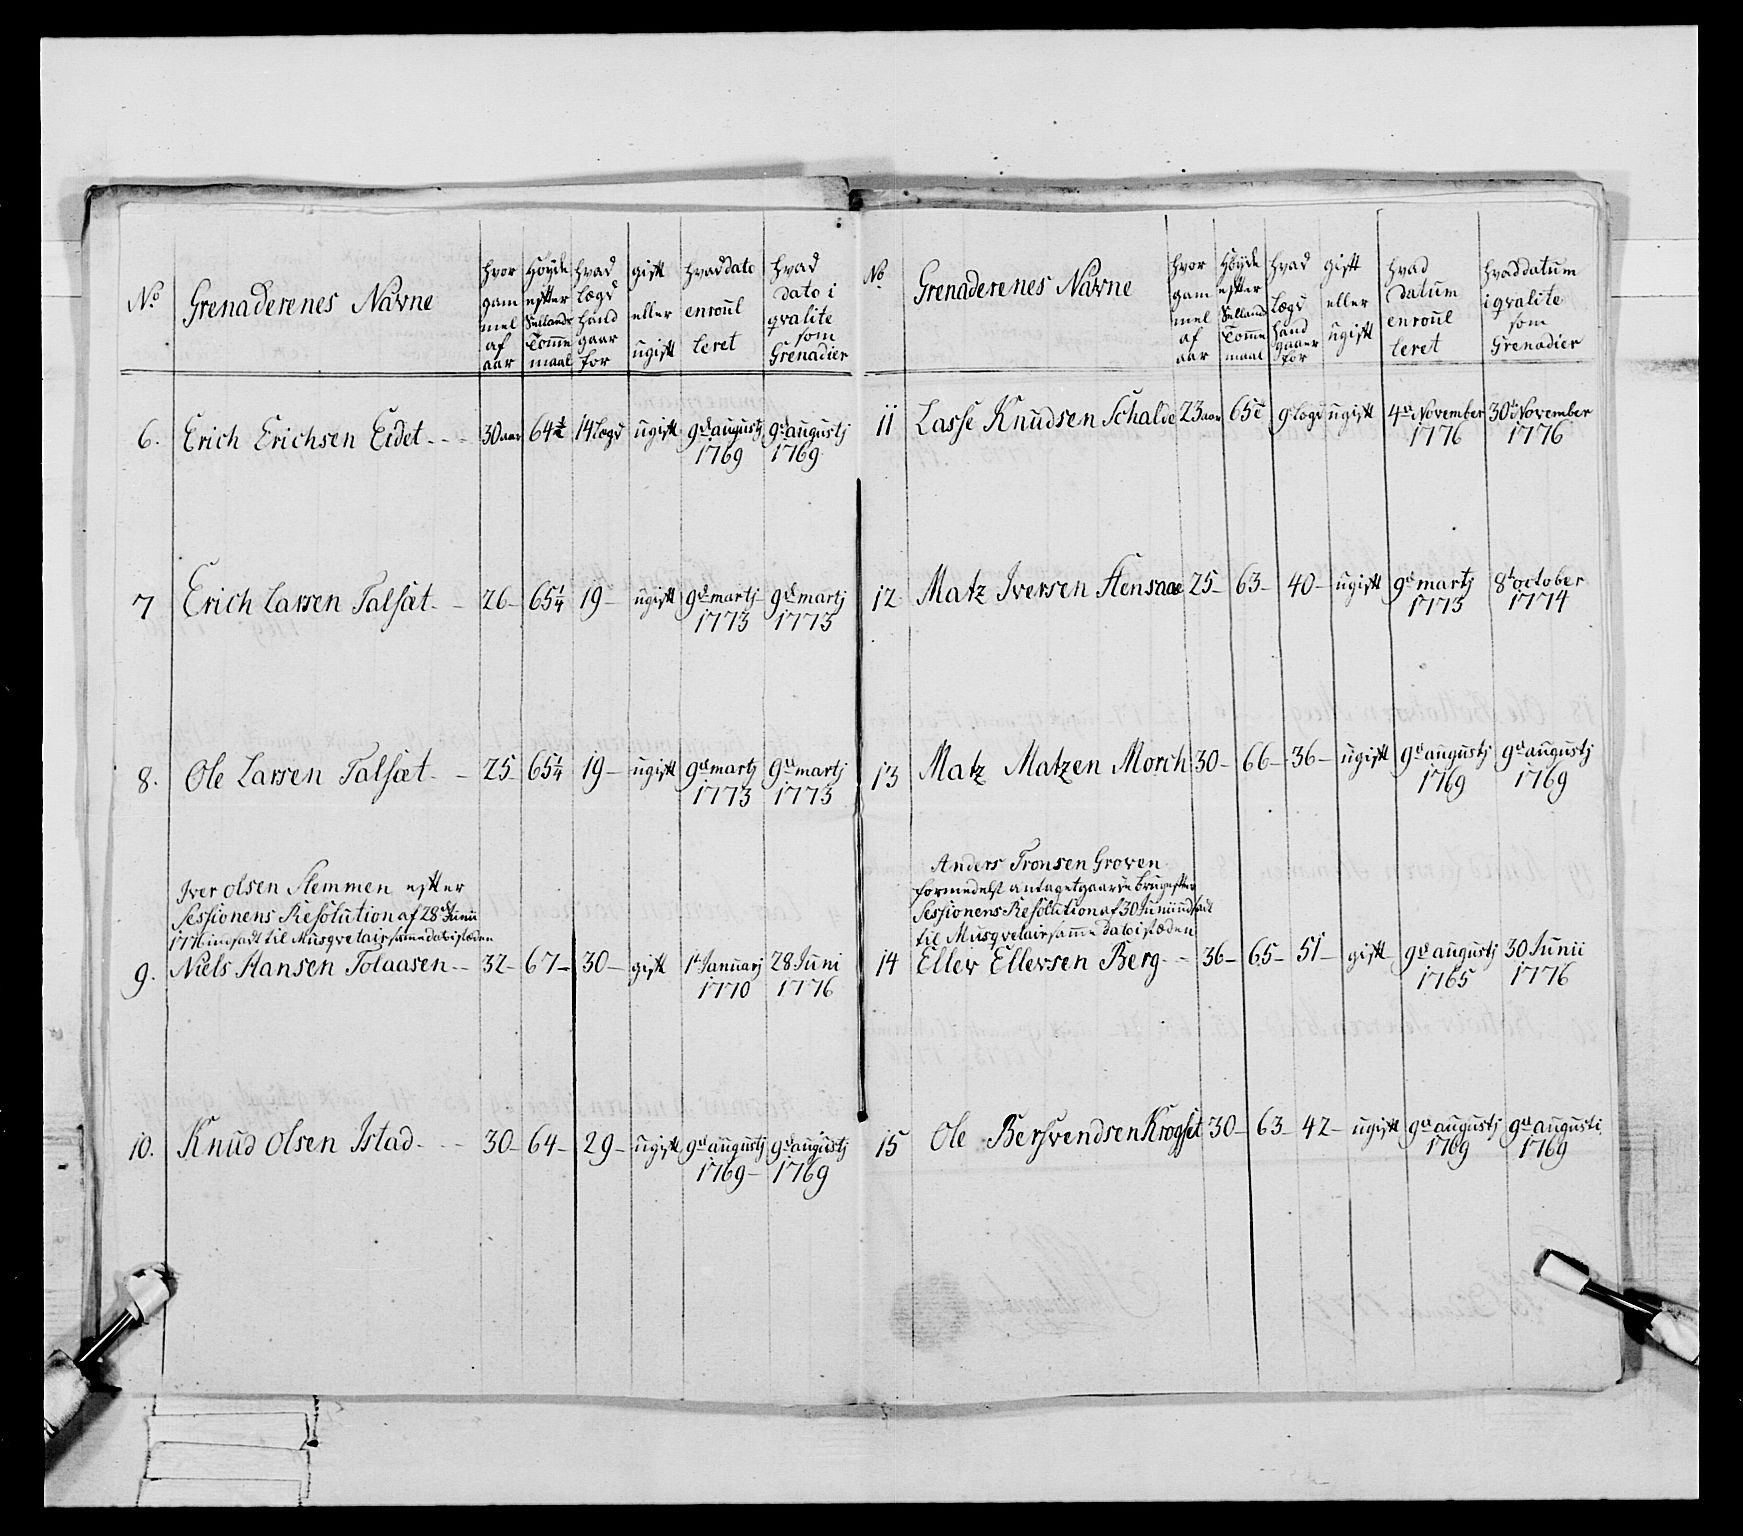 No Grenaderenes Navne hvor gammel af aar Høyde efter Sællands Tomme maal hvad Lægd hand gaar for gift eller ugift hvad dato enroulleret hvad dato i qvalite som Grenadier
6. Erich Erichsen Eidet 30 aar 64 14 Lægd ugift 9d augustj 1769 9d augustj 1769
7 Erich Larsen Talsæt 26 65 1/4 19 ugift 9d martj 1773 9d martj 1773
8. Ole Larsen Talsæt 25 65 1/4 19 ugift 9d martj 1773 9d martj 1773
Iver Olsen Slemmen efter
Sessionens Resolution af 28d Junii
1776 indsadt til Musqvetair samme dato i stæden
9. Niels Hansen Tolaasen 32 67 30 gift 1t Januarj 1770 28 Juni 1776
10. Knud Olsen Istad 30 64 29 ugift 9d augustj 1769 9d augustj 1769
No Grenaderenes Navne hvor gammel af aar Høyde efter Sællands Tomme maal hvad Lægd hand gaaer for gift eller ugift hvad datum enroulleret hvad datum i qvalite som Grenadier
11 Lasse Knudsen Schalde 23 aar 65 9 Lægd ugift 4de November 1776 30te November 1776
12 Matz Iversen Stensaae 25 63 40 ugift 9d martj 1773 8t october 1774
13 Matz Matzen Morch 30 66 36 ugift 9d augustj 1769 9d augustj 1769
Anders Tronsen Groven
formedelst antaget gaard i brug efter
Sessionens Resolution af 30 Junii udsadt
til Musqvetair samme dato i stæden
14 Ellev Ellevsen Berg 36 65 51 gift 9d augustj 1765 30 Junii 1776
15 Ole Bersvendsen Krogsæt 30 63 42 ugift 9d augustj 1769 9d augusti 1769